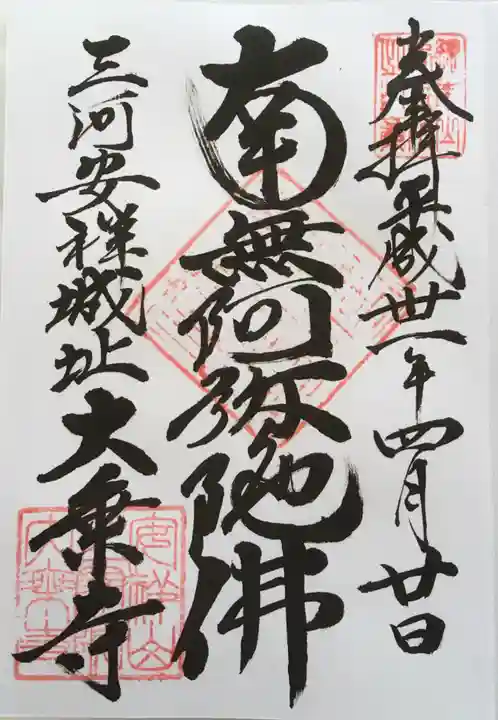 奉拝平成卅一年四月廿日
南無阿弥陀佛
三河安祥城址大乗寺